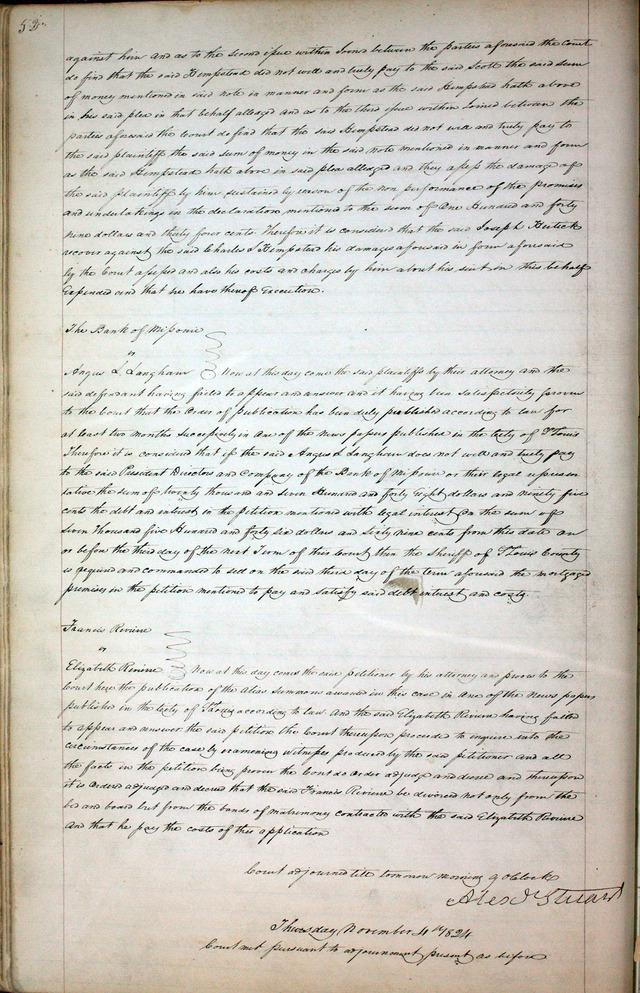 against him and as to the second issue within Joined between the parties aforesaid the Court
do find that the said Hempstead did not well and truly pay to the said Scott the said sum
of money mentioned in said note in manner and form as the said Hempstead hath above
in his said plea in that behalf alleged and as to the third issue within Joined between the
parties aforesaid the Court do find that the said Hempstead did not well and truly pay to
the said plaintiff the said sum of money in the said note mentioned in manner and form
as the said Hempstead hath above in said plea alleged and they assess the damage of
the said plaintiff by him sustained by reason of the non performance of the promises
and undertakings in the declaration mentioned to the sum of One Hundred and forty
nine dollars and thirty four cents Therefore it is considered that the said Joseph
recover against the said Charles S Hempstead his damages aforesaid in form aforesaid
by the Court assessed and also his costs and charges by him about his suit in this behalf
Expended and that he have thereof Execution.
The Bank of Missouri
"
Angus L. Langham Now at this day come the said plaintiffs by their attorney and the
said defendant having failed to appear and answer and it having been satisfactorily proven
to the Court that the Order of publication has been duly published according to law for
at least two months Successively in One of the News papers published in the City of St Louis
Therefore it is considered that if the said Angus L Langham does not well and truly pay
to the said President Directors and Company of the Bank of Missouri or their legal represen
tative the sum of twenty thousand and seven Hundred and forty Eight dollars and Ninety five
cents the debt and interest in the petition mentioned with legal interest on the sum of
seven thousand five Hundred and forty six dollars and sixty nine cents from this date on
or before the third day of the next Term of this Court then the Sheriff of St Louis County
is required and commanded to sell on the said third day of the term aforesaid the mortgaged
premises in the petition mentioned to pay and satisfy said debt interest and costs.
Francis Reviere
"
Elizabeth Reviere Now at this day comes the said petitioner by his attorney and proves to the
Court here the publication of the Alias Summons awarded in this case in One of the News papers
published in the City of St Louis according to law. And the said Elizabeth Reviere having failed
to appear and answer the said petition the Court thereupon proceeds to inquire into the
circumstances of the case by examening witnesses produced by the said petitioner and all
the facts in the petition being proven the Court do Order adjudge and decree and thereupon
it is Ordered adjudged and decreed that the said Francis Reviere be divorced not only from the
bed and board but from the bonds of matrimony contracted with the said Elizabeth Reviere
and that he pay the costs of this application
Court adjourned till tomorrow morning 9 oClock
Alex Stuart
Thursday November 4th 1824
Court met pursuant to adjournment present as before